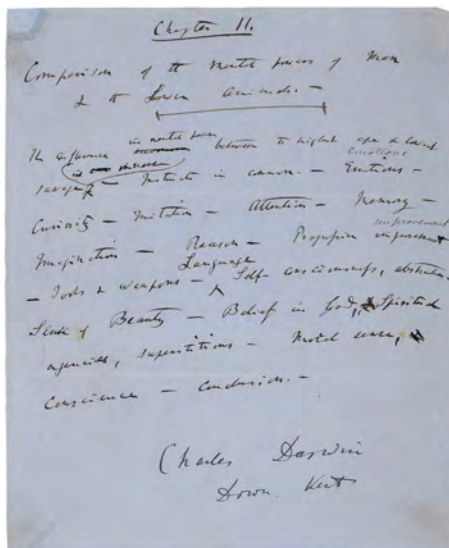 Chapter II.
Comparison of the mental powers of Man
& the Lower animals —
in mental power
The difference between the highest ape & lowest
immense emotions
savage — Instincts in common. — Emotions —
Curiosity — Imitation — Attention — Memory —
improvement
Imagination — Reason — Progressive improvement
Language
— Tools & weapons — Self-consciousness, abstraction
Sense of Beauty — Belief in God, Spiritual
agencies, superstitions — Moral sense,
conscience — conclusion. —
Charles Darwin
Down Kent